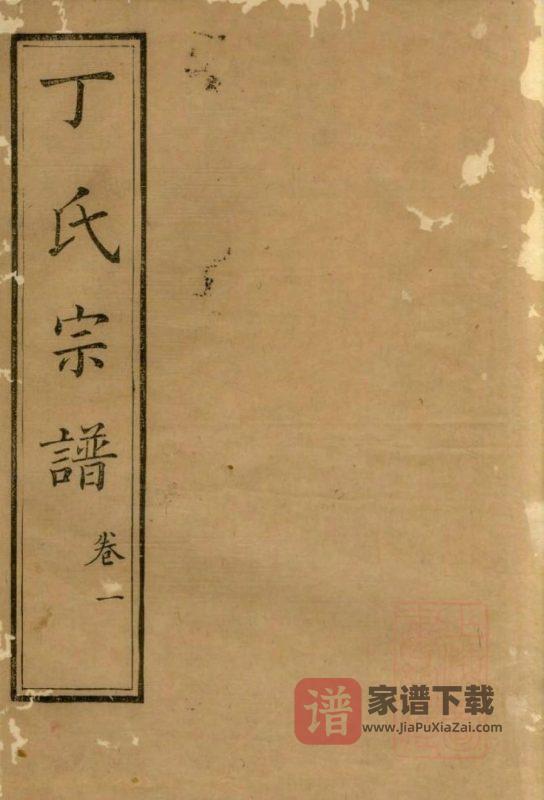 丁氏宗譜
卷一
谱 家谱下载
www.JiaPuXiaZai.com